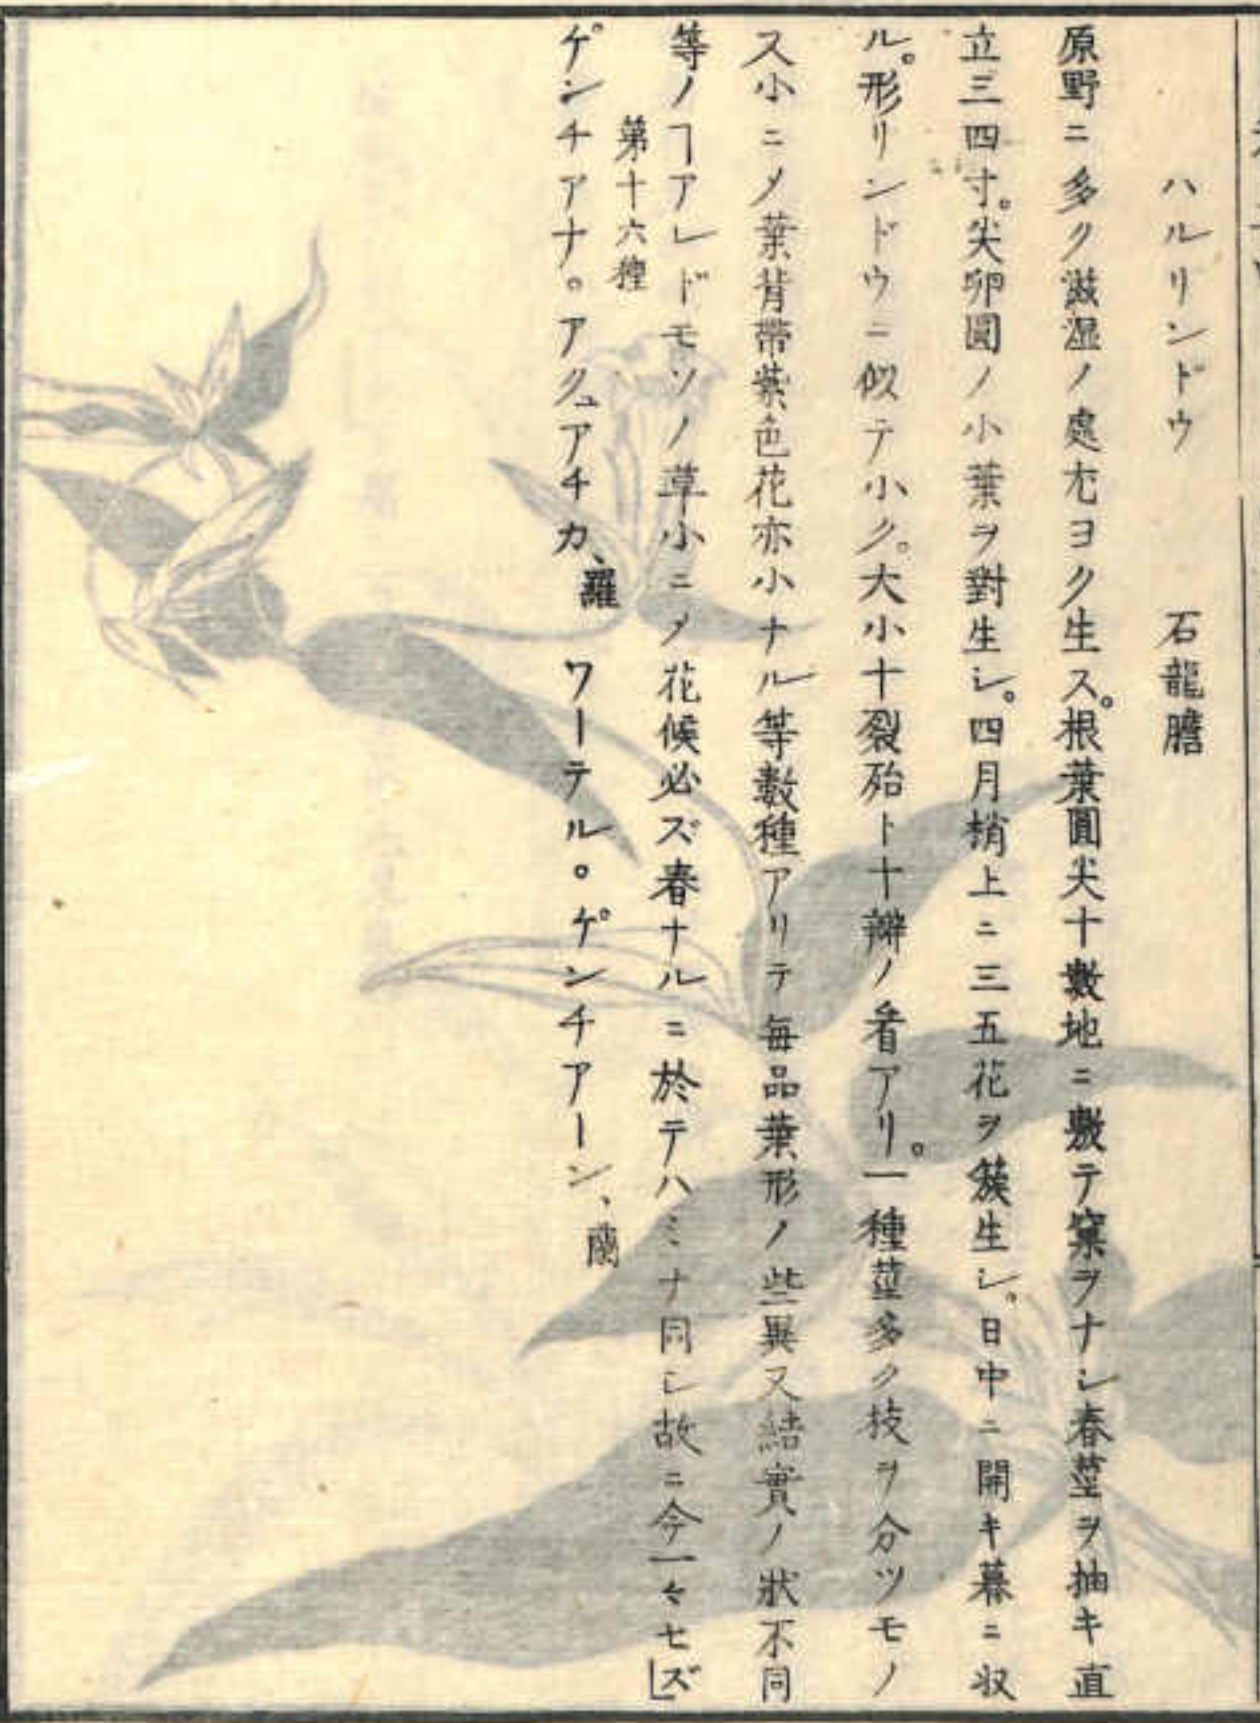 ハルリンドウ　石龍膽
原野ニ多ク滋湿ノ處尤ヨク生ス。根葉圓尖十數地ニ敷テ窠ヲナシ春莖ヲ抽キ直
立三四寸。尖卵圓ノ小葉ヲ對生シ。四月梢上ニ三五花ヲ簇生シ。日中ニ開キ暮ニ収
ル。形リンドウニ似テ小ク。大小十裂殆ト十瓣ノ看アリ。一種莖多ク枝ヲ分ツモノ
ス小ニ〆葉背帶紫色花亦小ナル等數種アリテ毎品葉形ノ些異又結實ノ狀不同
等ノヿアレドモソノ草小ニ〆花候必ズ春ナルニ於テハミナ同シ故ニ今一々セズ」
第十六種
ゲンチアナ。アクュアチカ、羅　ワーテル。ゲンチアーン、蘭